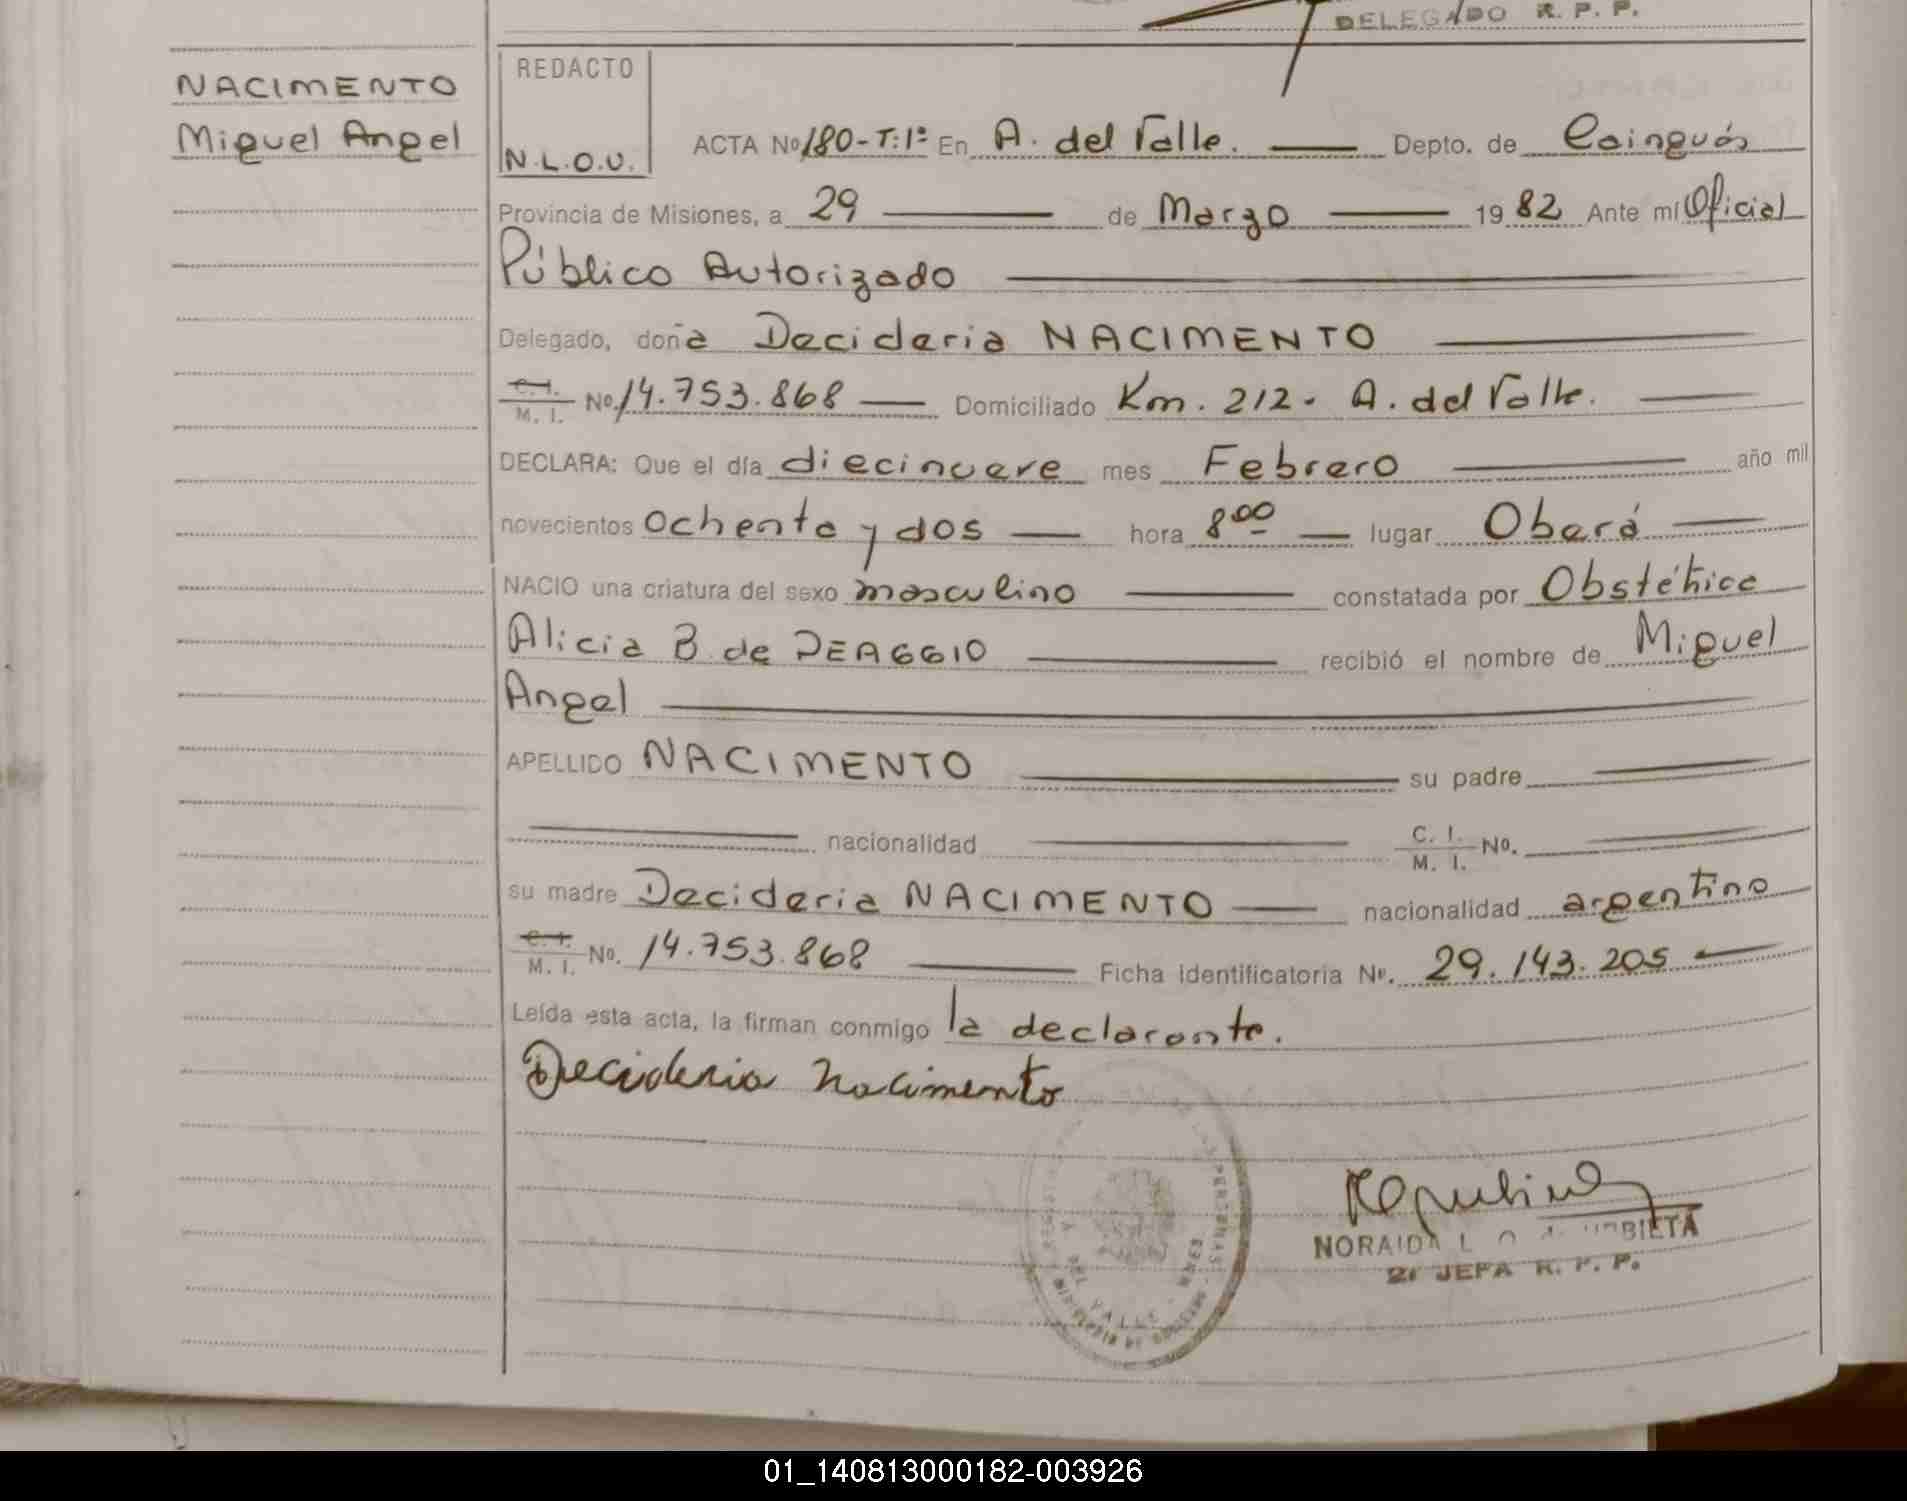 DELEGADO R. P. P.
NACIMENTO
Miguel Angel
REDACTO
N.L.O.U.
ACTA Nº 180-T:1º En A. del Valle. Depto. de Cainguás
Provincia de Misiones, a 29 de Marzo 1982 Ante mí Oficial
Público Autorizado
Delegado, doña Decideria NACIMENTO
C. I. / M. I. No. 14.753.868 Domiciliado Km. 212. A. del Valle.
DECLARA: Que el día diecinueve mes Febrero año mil
novecientos ochenta y dos hora 8 00 lugar Oberá
NACIO una criatura del sexo masculino constatada por Obstétrica
Alicia B. de DEAGGIO recibió el nombre de Miguel
Angel
APELLIDO NACIMENTO su padre
nacionalidad C. I. / M. I. No.
su madre Decideria NACIMENTO nacionalidad argentina
C. I. / M. I. No. 14.753.868 Ficha Identificatoria No. 29.143.205
Leída esta acta, la firman conmigo la declarante.
Decideria Nacimento
NORAIDA L. URBIETA
2ª JEFA R. P. P.
01_140813000182-003926